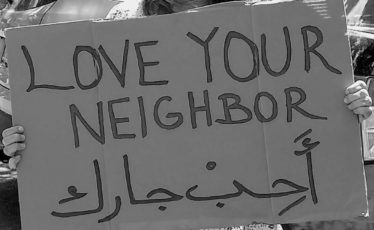 LOVE YOUR
NEIGHBOR
أَحِبْ جارك